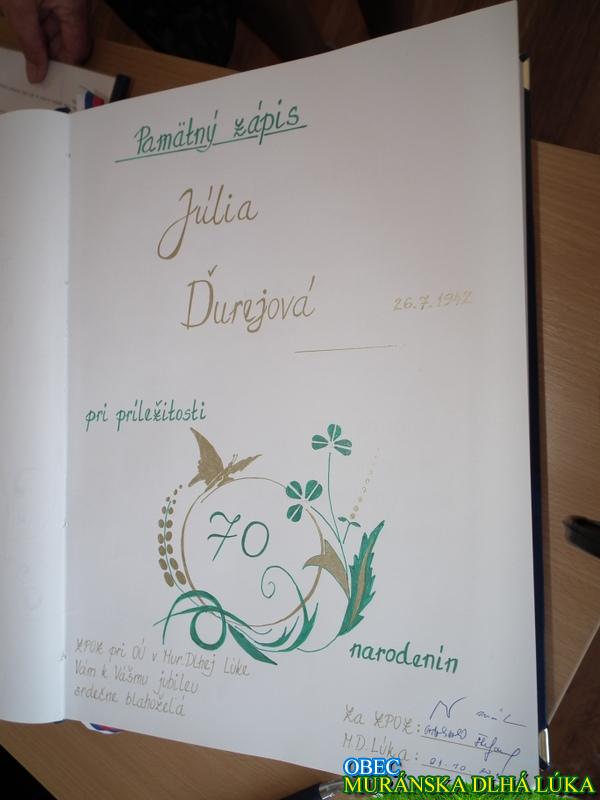 Pamätný zápis
Júlia
Ďurejová
26.7.1942
pri príležitosti
70
narodenín
ZPOZ pri OÚ v Mur. Dlhej Lúke
Vám k Vášmu jubileu
srdečne blahoželá
Za ZPOZ:
M.D. Lúka:
OBEC
MURÁNSKA DLHÁ LÚKA